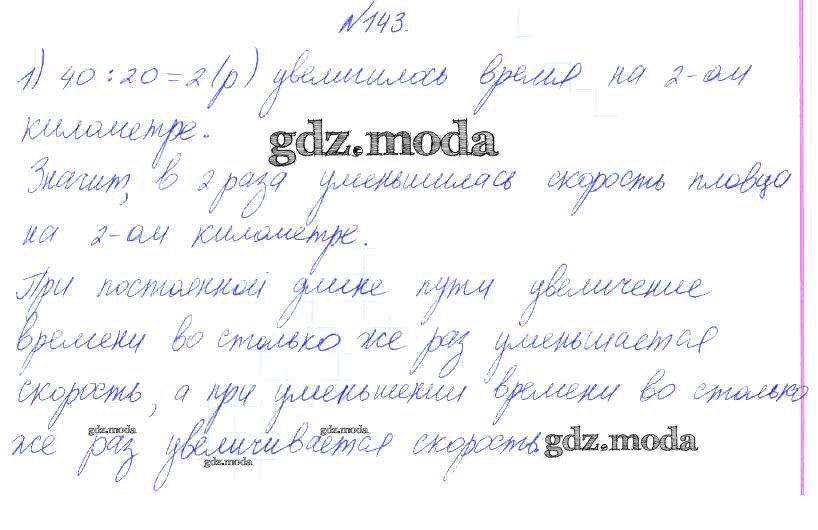 №143.
1) 40:20=2(р) увеличилось время на 2-ом
километре.
gdz.moda
Значит, в 2 раза уменьшилась скорость пловца
на 2-ом километре.
При постоянной длине пути увеличение
времени во столько же раз уменьшается
скорость, а при уменьшении времени во столько
же раз увеличивается скорость.
gdz.moda
gdz.moda
gdz.moda
gdz.moda